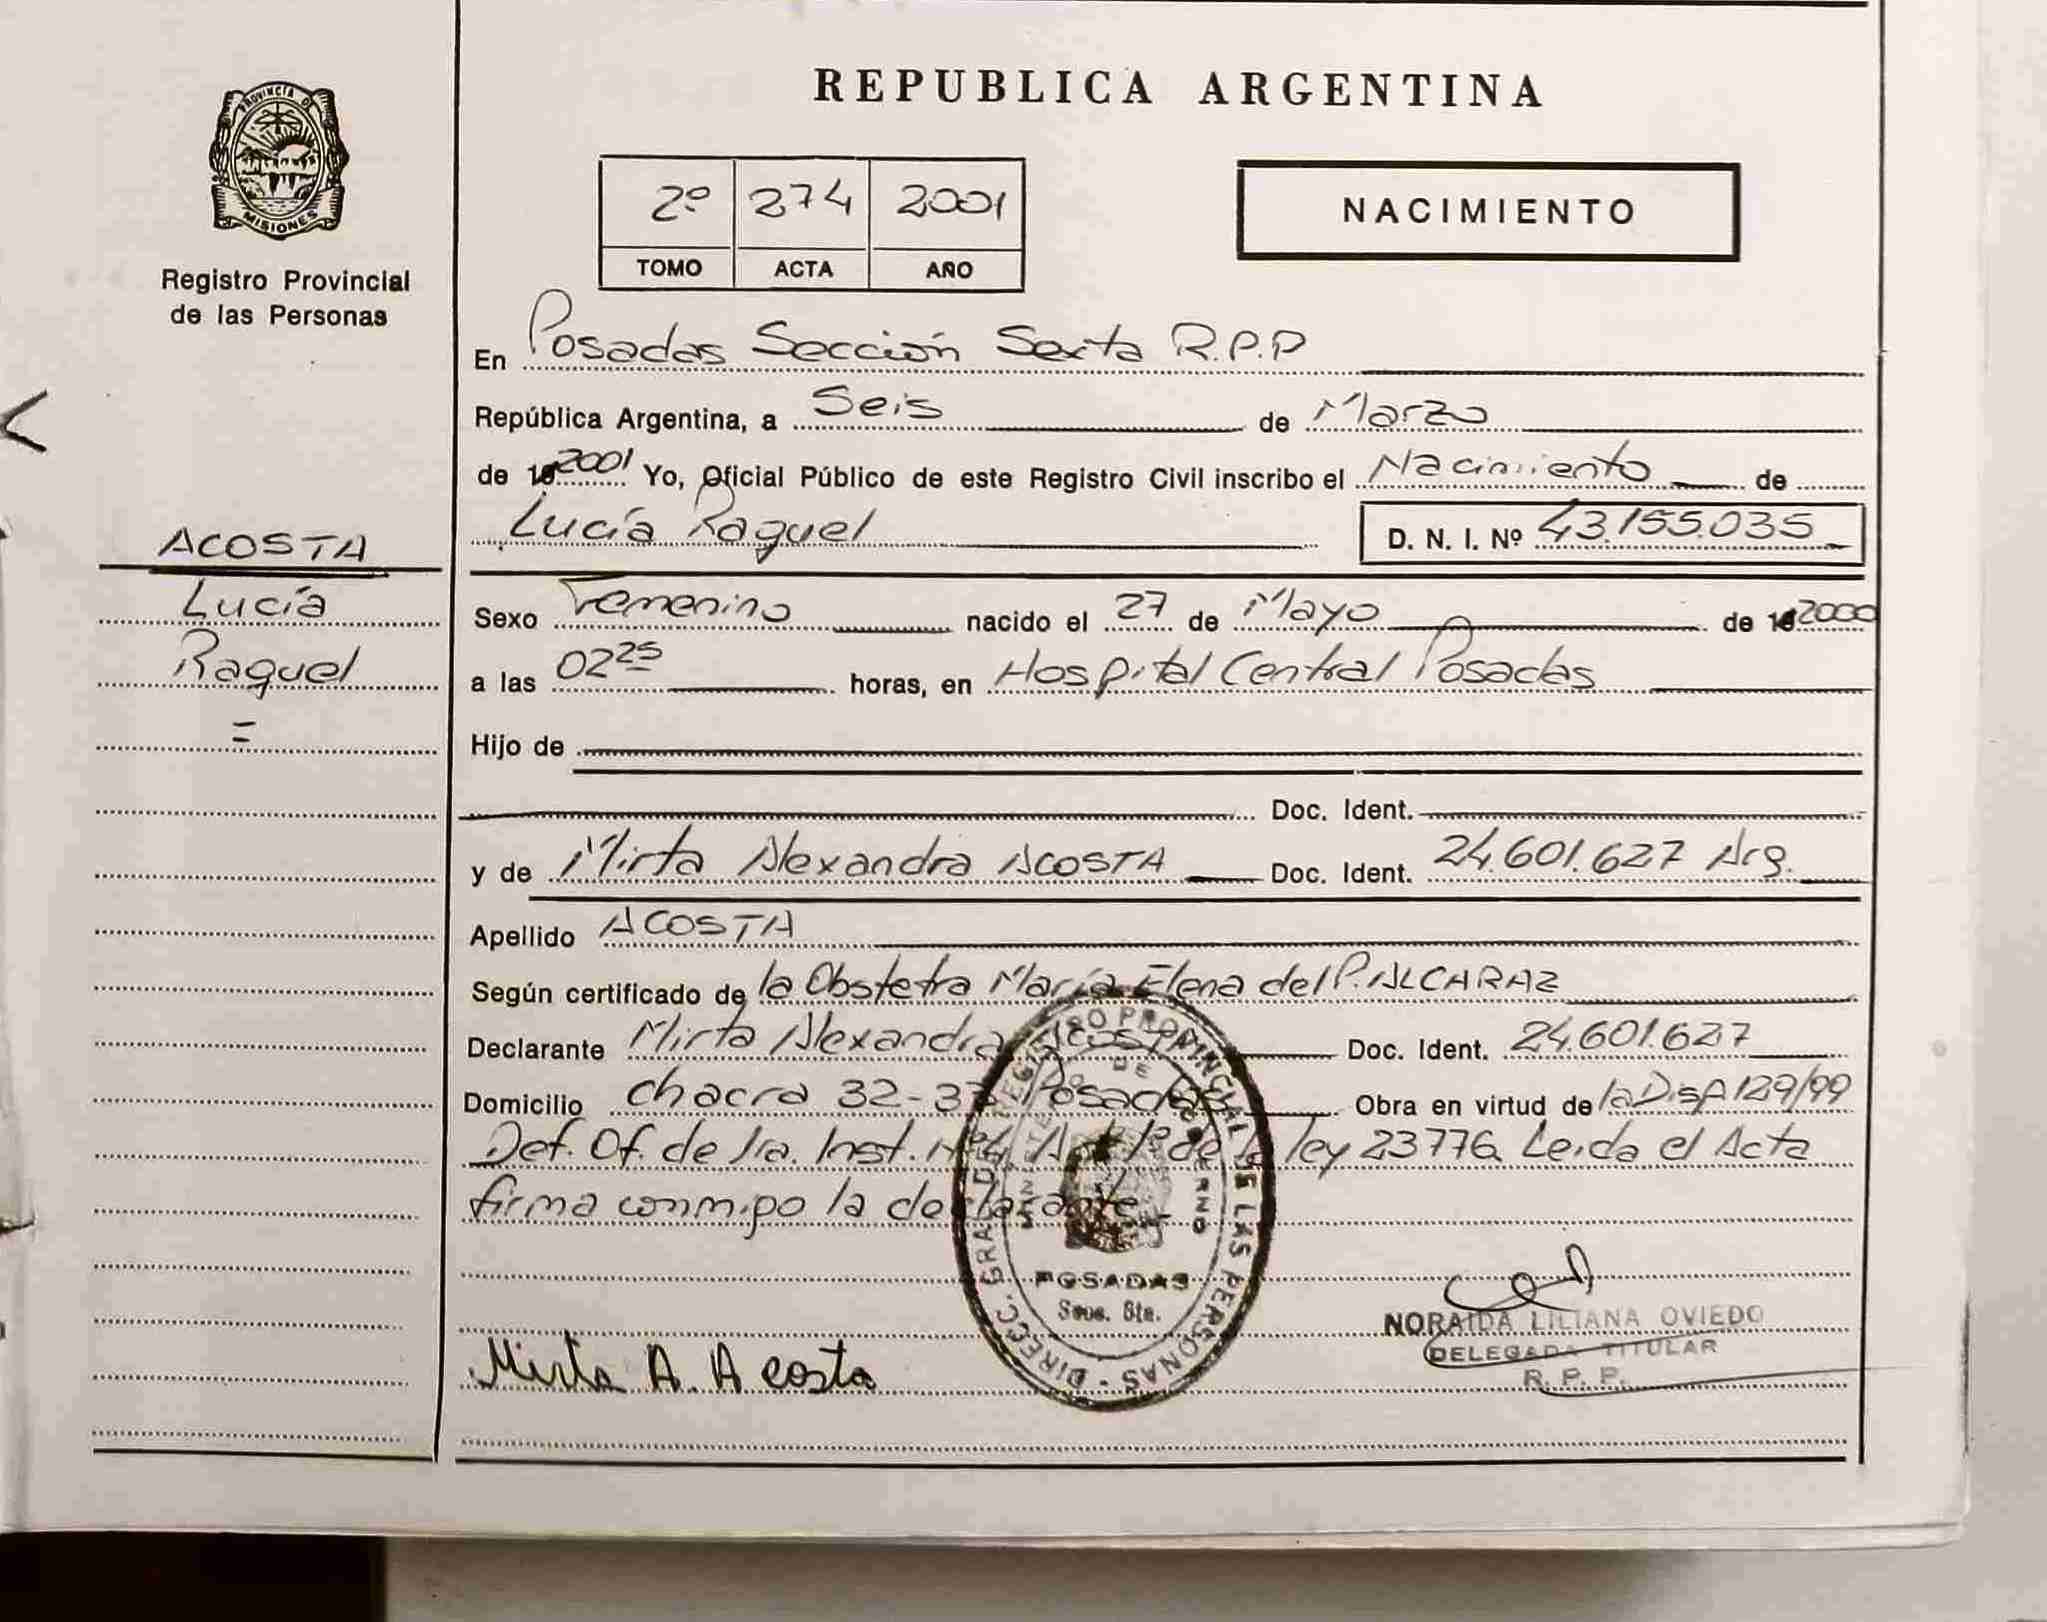 PROVINCIA DE
MISIONES
Registro Provincial
de las Personas
ACOSTA
Lucía
Raquel
=
REPUBLICA ARGENTINA
2º 274 2001
TOMO ACTA AÑO
NACIMIENTO
En Posadas Sección Sexta R.P.P
República Argentina, a Seis de Marzo
de 2001 Yo, Oficial Público de este Registro Civil inscribo el Nacimiento de
Lucía Raquel D. N. I. Nº 43.155.035
Sexo Femenino nacido el 27 de Mayo de 2000
a las 02 25 horas, en Hospital Central Posadas
Hijo de
Doc. Ident.
y de Mirta Alexandra ACOSTA Doc. Ident. 24.601.627 Arg.
Apellido ACOSTA
Según certificado de la Obstetra María Elena del P. ALCARAZ
Declarante Mirta Alexandra Acosta Doc. Ident. 24.601.627
Domicilio Chacra 32-33 Posadas Obra en virtud de la Disp 129/99
Def. Of. de 1ra. Inst. Nº4 Art 1º de la ley 23776 Leida el Acta
firma conmigo la declarante
DIRECC. GRAL. DEL REGISTRO PROVINCIAL DE LAS PERSONAS
MINISTERIO DE GOBIERNO
POSADAS
Secc. 6ta.
Mirta A. Acosta
NORAIDA LILIANA OVIEDO
DELEGADA TITULAR
R. P. P.